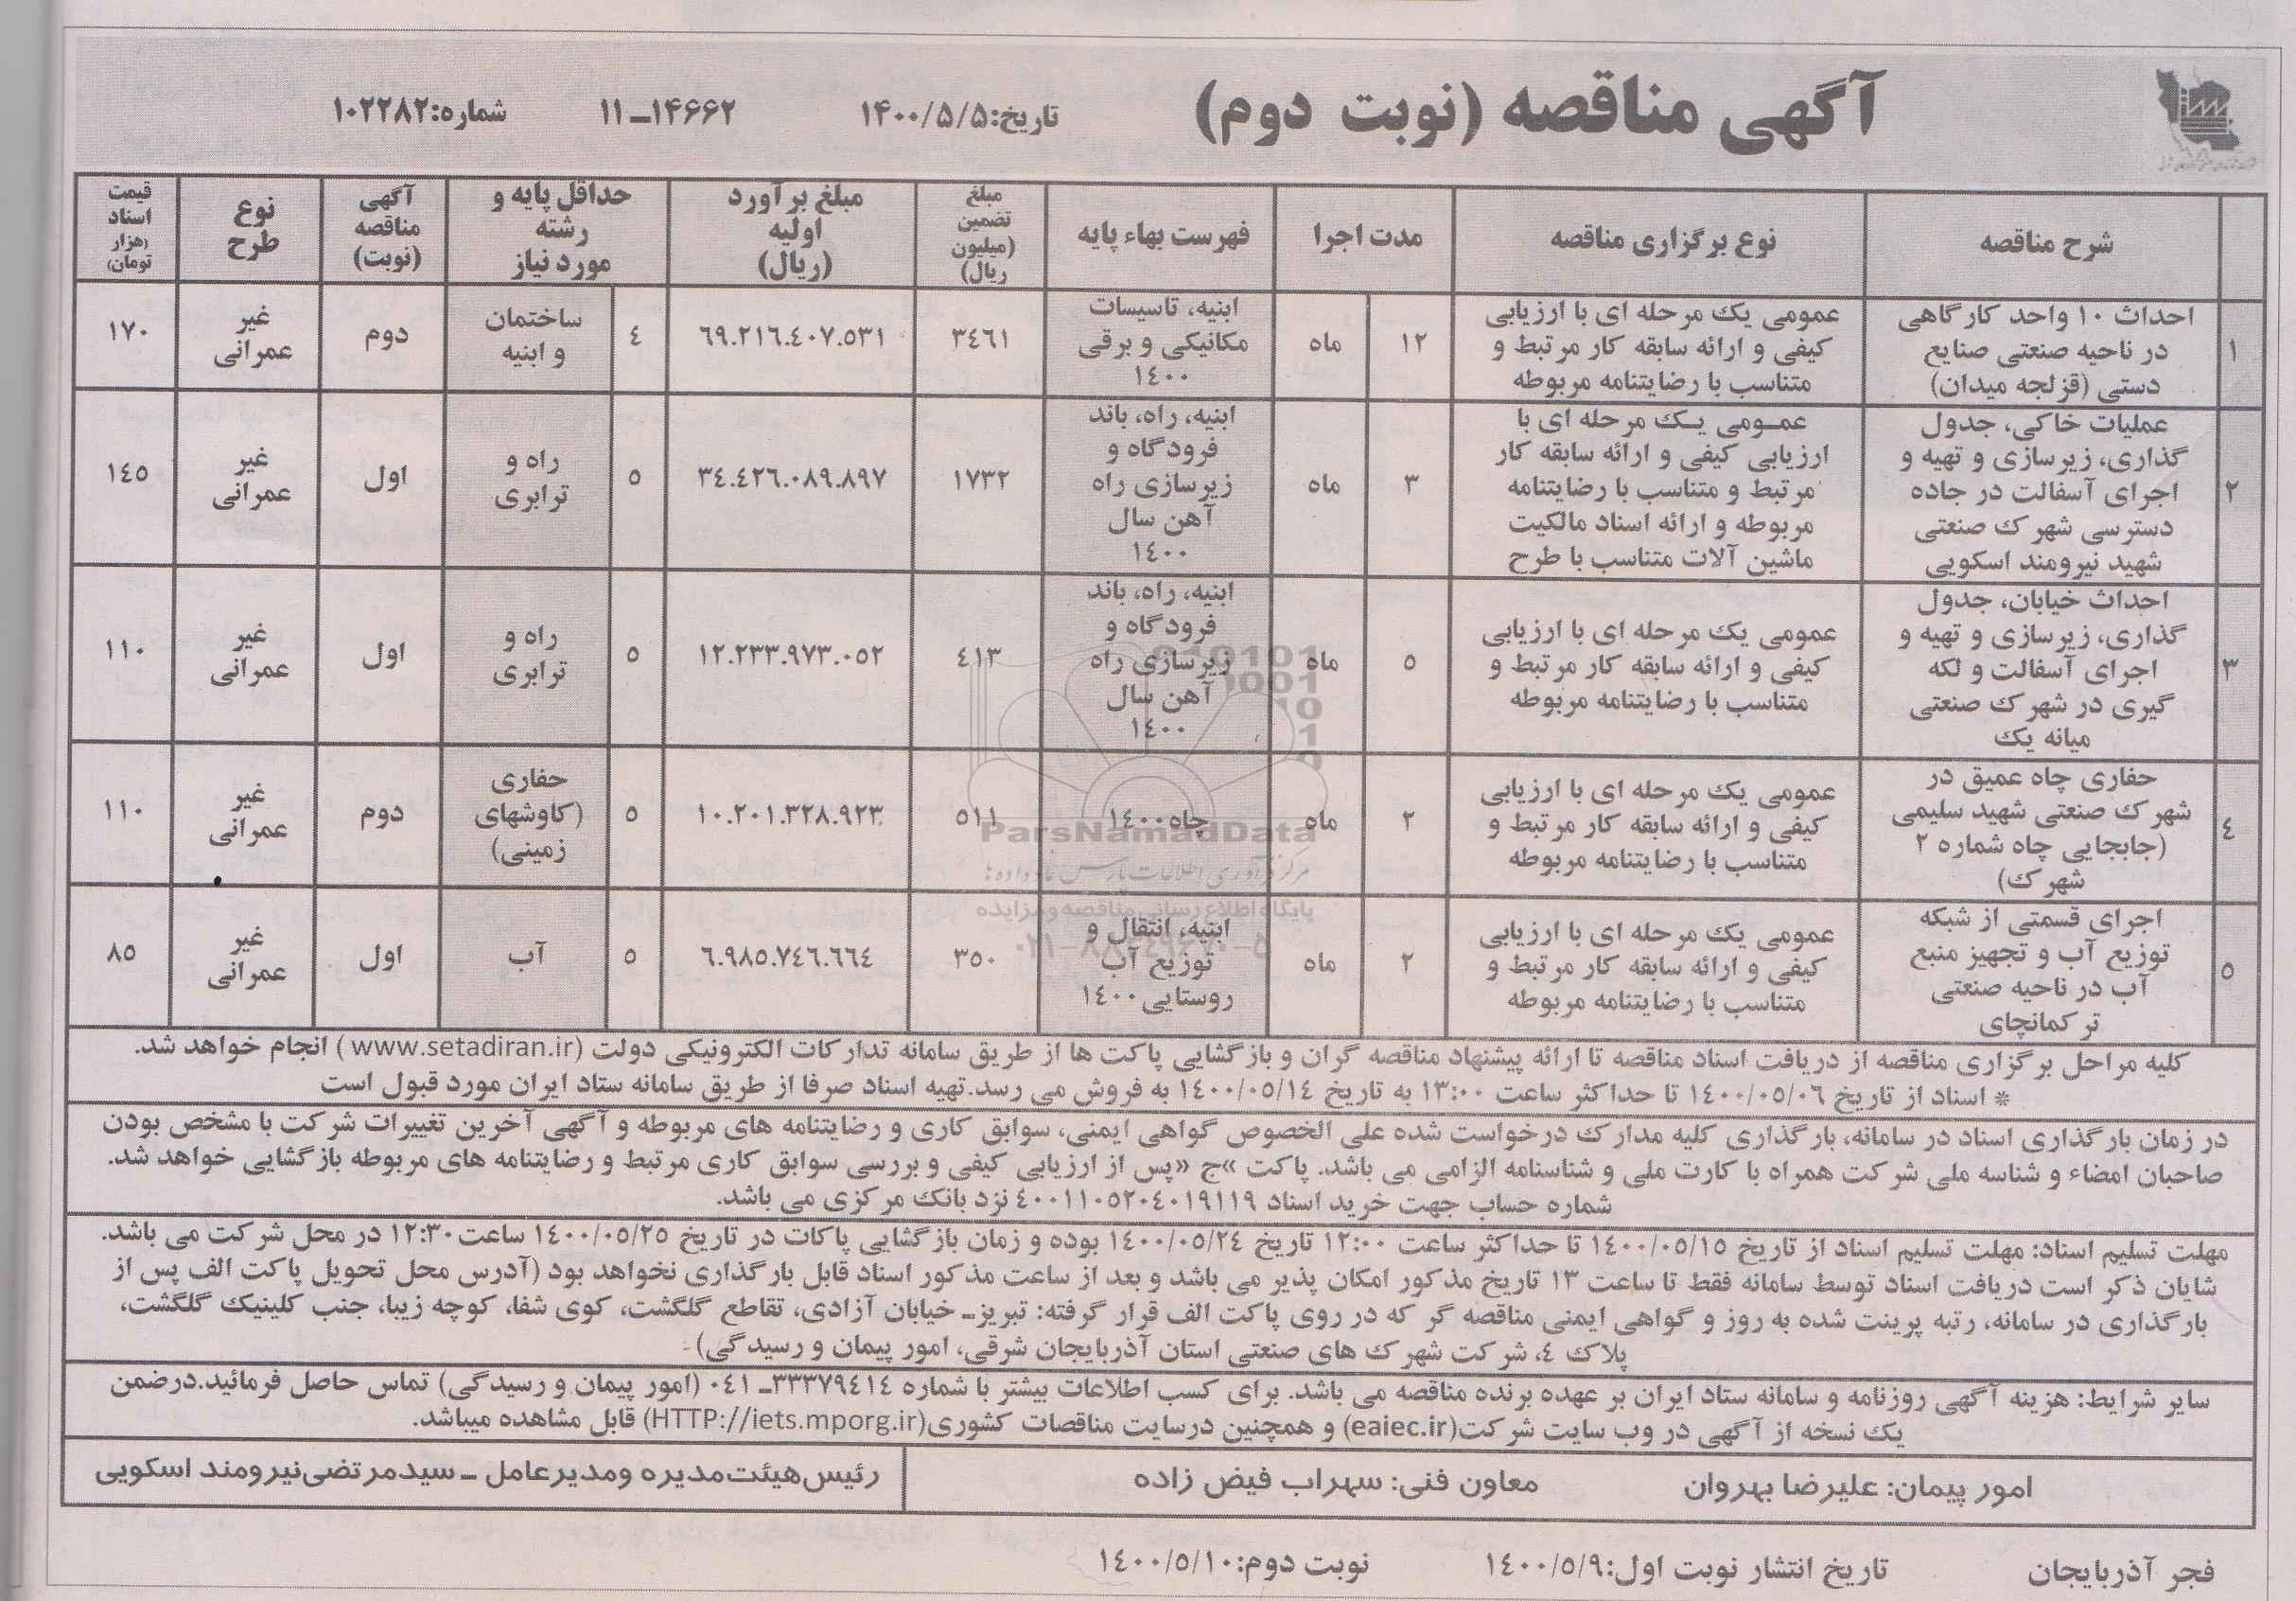 آگهی مناقصه (نوبت دوم)
تاریخ:۱۴۰۰/۵/۵
۱۱ـ۱۴۶۶۲
شماره:۱۰۲۲۸۲
شرح مناقصه
نوع برگزاری مناقصه
مدت اجرا
فهرست بهاء پایه
مبلغ
تضمین
(میلیون
ریال)
مبلغ برآورد
اولیه
(ریال)
حداقل پایه و
رشته
مورد نیاز
آگهی
مناقصه
(نوبت)
نوع
طرح
قیمت
اسناد
(هزار
تومان)
۱
احداث ۱۰ واحد کارگاهی
در ناحیه صنعتی صنایع
دستی (قزلجه میدان)
عمومی یک مرحله ای با ارزیابی
کیفی و ارائه سابقه کار مرتبط و
متناسب با رضایتنامه مربوطه
۱۲
ماه
ابنیه، تاسیسات
مکانیکی و برقی
۱٤۰۰
۳٤٦۱
٦۹.۲۱٦.٤۰۷.۵۳۱
٤
ساختمان
و ابنیه
دوم
غیر
عمرانی
۱۷۰
۲
عملیات خاکی، جدول
گذاری، زیرسازی و تهیه و
اجرای آسفالت در جاده
دسترسی شهرک صنعتی
شهید نیرومند اسکویی
عمـومی یـک مرحله ای با
ارزیابی کیفی و ارائه سابقه کار
مرتبط و متناسب با رضایتنامه
مربوطه و ارائه اسناد مالکیت
ماشین آلات متناسب با طرح
۳
ماه
ابنیه، راه، باند
فرودگاه و
زیرسازی راه
آهن سال
۱٤۰۰
۱۷۳۲
۳٤.٤۲٦.۰۸۹.۸۹۷
۵
راه و
ترابری
اول
غیر
عمرانی
۱٤۵
۳
احداث خیابان، جدول
گذاری، زیرسازی و تهیه و
اجرای آسفالت و لکه
گیری در شهرک صنعتی
میانه یک
عمومی یک مرحله ای با ارزیابی
کیفی و ارائه سابقه کار مرتبط و
متناسب با رضایتنامه مربوطه
۵
ماه
ابنیه، راه، باند
فرودگاه و
زیرسازی راه
آهن سال
۱٤۰۰
٤۱۳
۱۲.۲۳۳.۹۷۳.۰۵۲
۵
راه و
ترابری
اول
غیر
عمرانی
۱۱۰
٤
حفاری چاه عمیق در
شهرک صنعتی شهید سلیمی
(جابجایی چاه شماره ۲
شهرک)
عمومی یک مرحله ای با ارزیابی
کیفی و ارائه سابقه کار مرتبط و
متناسب با رضایتنامه مربوطه
۲
ماه
چاه۱٤۰۰
۵۱۱
۱۰.۲۰۱.۳۲۸.۹۲۳
۵
حفاری
(کاوشهای
زمینی)
دوم
غیر
عمرانی
۱۱۰
۵
اجرای قسمتی از شبکه
توزیع آب و تجهیز منبع
آب در ناحیه صنعتی
ترکمانچای
عمومی یک مرحله ای با ارزیابی
کیفی و ارائه سابقه کار مرتبط و
متناسب با رضایتنامه مربوطه
۲
ماه
ابنیه، انتقال و
توزیع آب
روستایی۱٤۰۰
۳۵۰
٦.۹۸۵.۷٤٦.٦٦٤
۵
آب
اول
غیر
عمرانی
۸۵
ParsNamadData
مرکز فرآوری اطلاعات پارس نماد داده‌ها
پایگاه اطلاع رسانی مناقصه و مزایده
کلیه مراحل برگزاری مناقصه از دریافت اسناد مناقصه تا ارائه پیشنهاد مناقصه گران و بازگشایی پاکت ها از طریق سامانه تدارکات الکترونیکی دولت (www.setadiran.ir) انجام خواهد شد.
* اسناد از تاریخ ۱٤۰۰/۰۵/۰٦ تا حداکثر ساعت ۱۳:۰۰ به تاریخ ۱٤۰۰/۰۵/۱٤ به فروش می رسد.تهیه اسناد صرفا از طریق سامانه ستاد ایران مورد قبول است
در زمان بارگذاری اسناد در سامانه، بارگذاری کلیه مدارک درخواست شده علی الخصوص گواهی ایمنی، سوابق کاری و رضایتنامه های مربوطه و آگهی آخرین تغییرات شرکت با مشخص بودن
صاحبان امضاء و شناسه ملی شرکت همراه با کارت ملی و شناسنامه الزامی می باشد. پاکت »ج «پس از ارزیابی کیفی و بررسی سوابق کاری مرتبط و رضایتنامه های مربوطه بازگشایی خواهد شد.
شماره حساب جهت خرید اسناد ٤۰۰۱۱۰۵۲۰٤۰۱۹۱۱۹ نزد بانک مرکزی می باشد.
مهلت تسلیم اسناد: مهلت تسلیم اسناد از تاریخ ۱٤۰۰/۰۵/۱۵ تا حداکثر ساعت ۱۲:۰۰ تاریخ ۱٤۰۰/۰۵/۲٤ بوده و زمان بازگشایی پاکات در تاریخ ۱٤۰۰/۰۵/۲۵ ساعت۱۲:۳۰ در محل شرکت می باشد.
شایان ذکر است دریافت اسناد توسط سامانه فقط تا ساعت ۱۳ تاریخ مذکور امکان پذیر می باشد و بعد از ساعت مذکور اسناد قابل بارگذاری نخواهد بود (آدرس محل تحویل پاکت الف پس از
بارگذاری در سامانه، رتبه پرینت شده به روز و گواهی ایمنی مناقصه گر که در روی پاکت الف قرار گرفته: تبریزـ خیابان آزادی، تقاطع گلگشت، کوی شفا، کوچه زیبا، جنب کلینیک گلگشت،
پلاک ٤، شرکت شهرک های صنعتی استان آذربایجان شرقی، امور پیمان و رسیدگی)
سایر شرایط: هزینه آگهی روزنامه و سامانه ستاد ایران بر عهده برنده مناقصه می باشد. برای کسب اطلاعات بیشتر با شماره ۳۳۳۷۹٤۱٤ـ ۰٤۱ (امور پیمان و رسیدگی) تماس حاصل فرمائید.درضمن
یک نسخه از آگهی در وب سایت شرکت(eaiec.ir) و همچنین درسایت مناقصات کشوری(HTTP://iets.mporg.ir) قابل مشاهده میباشد.
امور پیمان: علیرضا بهروان
معاون فنی: سهراب فیض زاده
رئیس هیئت مدیره ومدیرعامل ـ سیدمرتضی نیرومند اسکویی
فجر آذربایجان
تاریخ انتشار نوبت اول:۱٤۰۰/۵/۹
نوبت دوم:۱٤۰۰/۵/۱۰